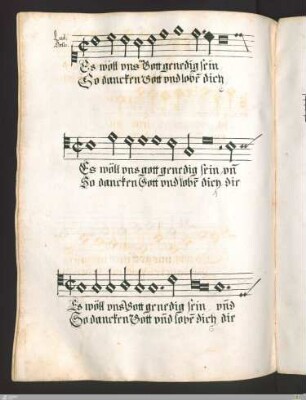 Es wöll vns Gott genedig sein
So dancken Gott vnd lobē dich
Es wöll vns gott genedig sein, vñ
So dancken Gott vnd lobē dich die
Es wöll vns Gott genedig sein vnd
So dancken Gott vñd lobē dich die